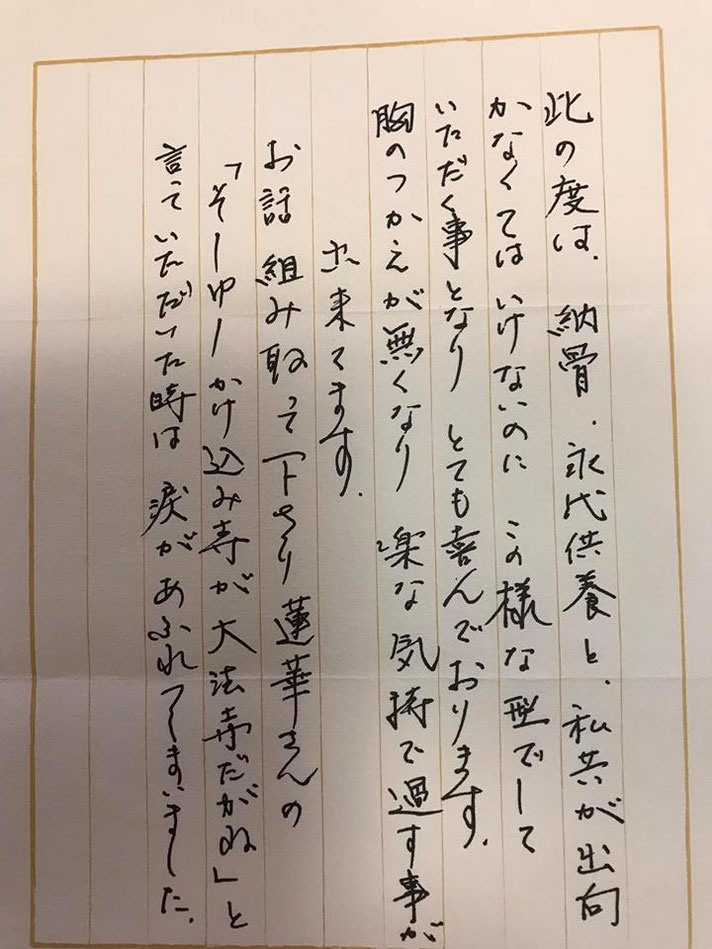 此の度は、納骨、永代供養と、私共が出向
かなくてはいけないのに この様な型でして
いただく事となり とても喜んでおります。
胸のつかえが無くなり 楽な気持で過す事が
出来てます。
お話 組み取って下さり 蓮華さんの
「そーゆーかけ込み寺が大法寺だがね」と
言っていただいた時は 涙があふれてしまいました。